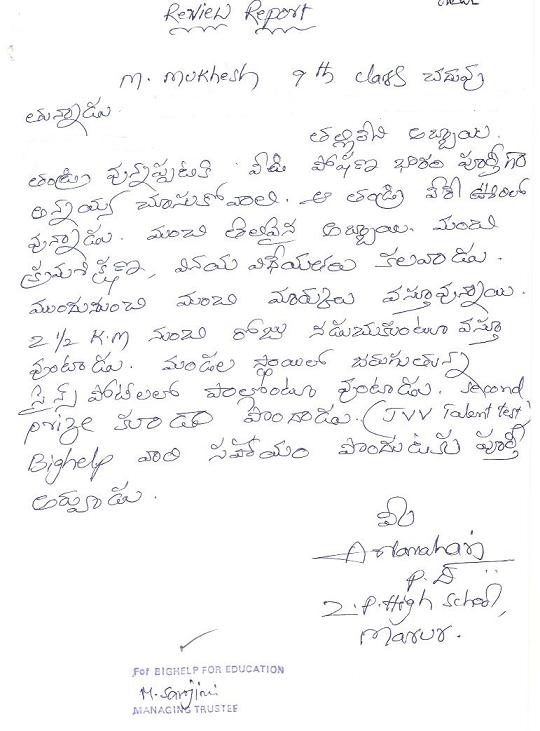 Review Report
M. Mukhesh 9th class చదువు
తున్నాడు.
తల్లిలేని అబ్బాయి.
తండ్రి వున్నప్పటికి వీడి పోషణ భారం పూర్తిగా
అన్నయ్య చూసుకోవాలి. ఆ తండ్రి వేరే ఊరిలో
వున్నాడు. మంచి తెలివైన అబ్బాయి. మంచి
క్రమశిక్షణ, వినయ విధేయతలు కలవాడు.
ముందునుంచి మంచి మార్కులు వస్తూవున్నాయి.
2 1/2 K.M నుంచి రోజు నడుచుకుంటూ వస్తూ
వుంటాడు. మండల స్థాయిలో జరుగుతున్న
సైన్స్ పోటీలలో పాల్గొంటూ వుంటాడు. second
prize కూడా పొందాడు. (JVV Talent Test)
Bighelp వారి సహాయం పొందుటకు పూర్తి
అర్హుడు.
P.D
Z.P. High School,
Marur.
For BIGHELP FOR EDUCATION
M. Sanjini
MANAGING TRUSTEE